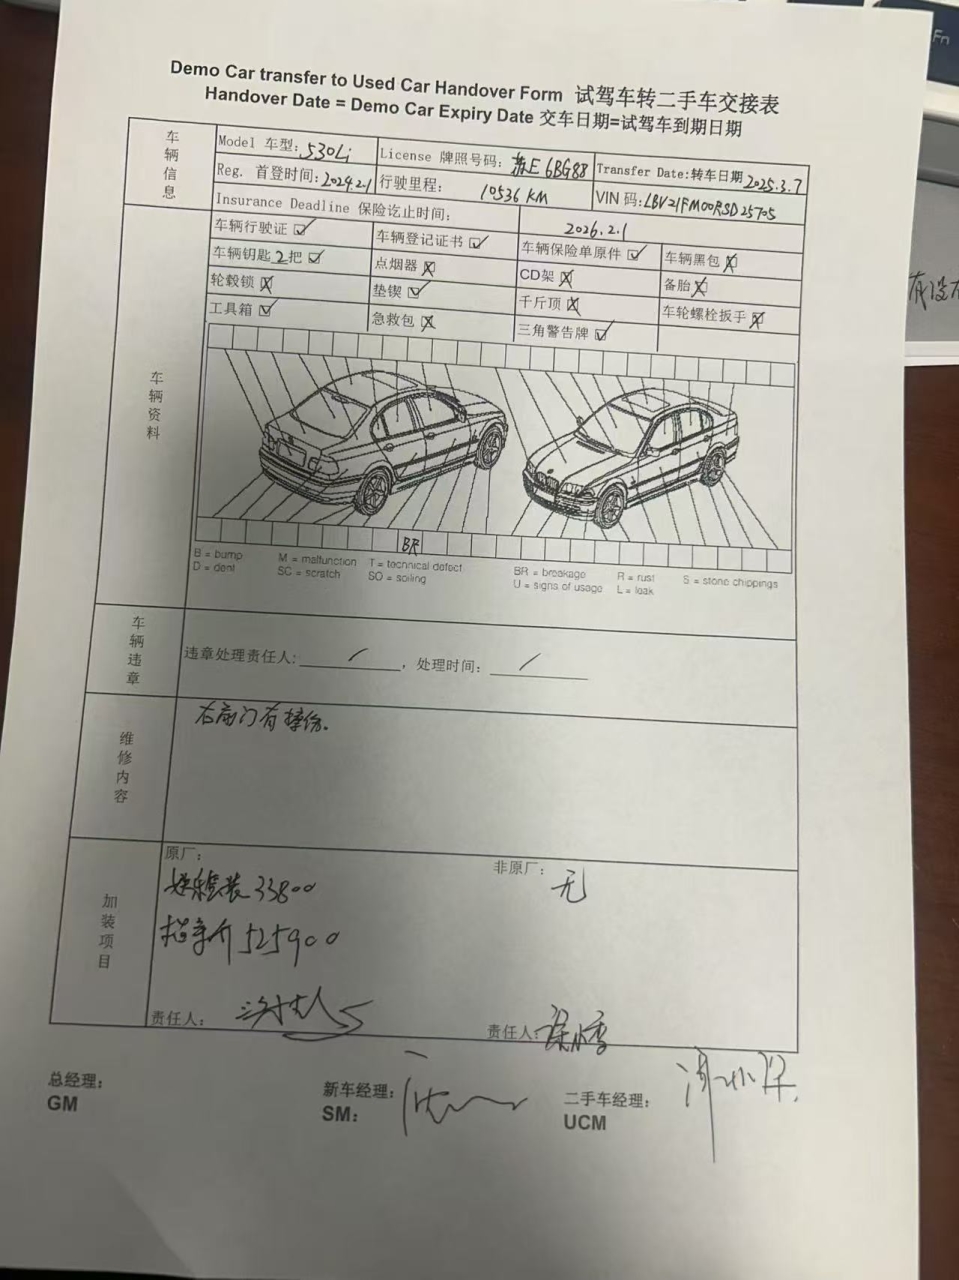 Demo Car transfer to Used Car Handover Form 试驾车转二手车交接表
Handover Date = Demo Car Expiry Date 交车日期=试驾车到期日期
车辆信息
Model 车型: 530Li License 牌照号码: 苏E 6BG88 Transfer Date:转车日期 2025.3.7
Reg. 首登时间: 2024.2.1 行驶里程: 10536 KM VIN 码: LBV21FM00RSD25705
Insurance Deadline 保险讫止时间: 2026.2.1
车辆资料
车辆行驶证 ☑ 车辆登记证书 ☑ 车辆保险单原件 ☑ 车辆黑包 ☒
车辆钥匙 2 把 ☑ 点烟器 ☒ CD架 ☒ 备胎 ☒
轮毂锁 ☒ 垫锲 ☑ 千斤顶 ☒ 车轮螺栓扳手 ☒
工具箱 ☑ 急救包 ☒ 三角警告牌 ☑
BR
B = bump M = malfunction T = tecnnical defect BR = breakage R = rust S = stone chippings
D = dent SC = scratch SO = soiling U = signs of usage L = leak
车辆违章
违章处理责任人: / , 处理时间: /
维修内容
右前门有撞伤.
加装项目
原厂: 非原厂: 无
套装 33800
指导价 525900
责任人: 责任人:
总经理: 新车经理: 二手车经理:
GM SM: UCM
Fn
有没